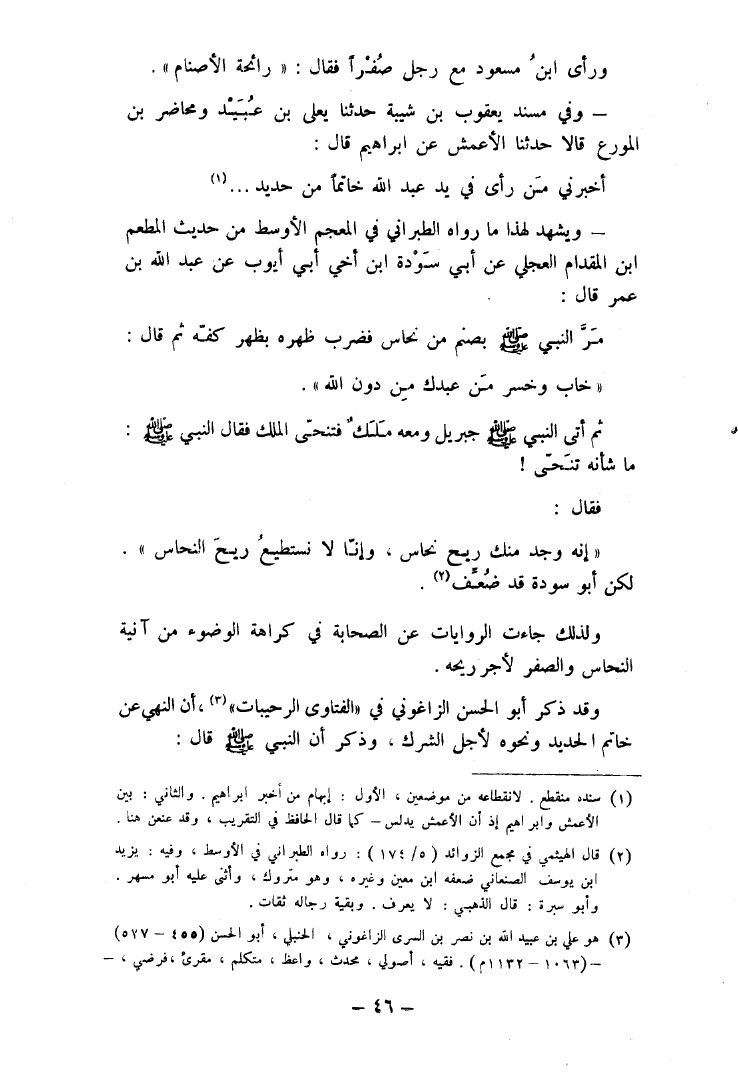 ورأى ابنُ مسعود مع رجل صُفْراً فقال : « رائحة الأصنام » .
– وفي مسند يعقوب بن شيبة حدثنا يعلى بن عُبَيْد ومحاضر بن
المورع قالا حدثنا الأعمش عن ابراهيم قال :
أخبرني مَن رأى في يد عبد الله خاتماً من حديد ...(١)
– ويشهد لهذا ما رواه الطبراني في المعجم الأوسط من حديث المطعم
ابن المقدام العجلي عن أبي سَوْدة ابن أخي أبي أيوب عن عبد الله بن
عمر قال :
مَرَّ النبي ﷺ بصنم من نحاس فضرب ظهره بظهر كفّه ثم قال :
« خاب وخسر مَن عبدك مِن دون الله » .
ثم أتى النبي ﷺ جبريل ومعه مَلَكٌ فتنحّى الملك فقال النبي ﷺ :
ما شأنه تنَحّى !
فقال :
« إنه وجد منك ريح نحاس ، وإنّا لا نستطيعُ ريحَ النحاس » .
لكن أبو سودة قد ضُعِّف(٢) .
ولذلك جاءت الروايات عن الصحابة في كراهة الوضوء من آنية
النحاس والصفر لأجر ريحه .
وقد ذكر أبو الحسن الزاغوني في «الفتاوى الرحيبات»(٣) ، أن النهي عن
خاتم الحديد ونحوه لأجل الشرك ، وذكر أن النبي ﷺ قال :
(١) سنده منقطع . لانقطاعه من موضعين ، الأول : إبهام من أخبر ابراهيم . والثاني : بين
الأعمش وابراهيم إذ أن الأعمش يدلس – كما قال الحافظ في التقريب ، وقد عنعن هنا .
(٢) قال الهيثمي في مجمع الزوائد ( ٥ / ١٧٤ ) : رواه الطبراني في الأوسط ، وفيه : يزيد
ابن يوسف الصنعاني ضعفه ابن معين وغيره ، وهو متروك ، وأثنى عليه أبو مسهر .
وأبو سبرة : قال الذهبي : لا يعرف . وبقية رجاله ثقات .
(٣) هو علي بن عبيد الله بن نصر بن السرى الزاغوني ، الحنبلي ، أبو الحسن (٤٥٥ – ٥٢٧)
–(١٠٦٣ – ١١٣٢م) . فقيه ، أصولي ، محدث ، واعظ ، متكلم ، مقرئ ،فرضي ، –
– ٤٦ –